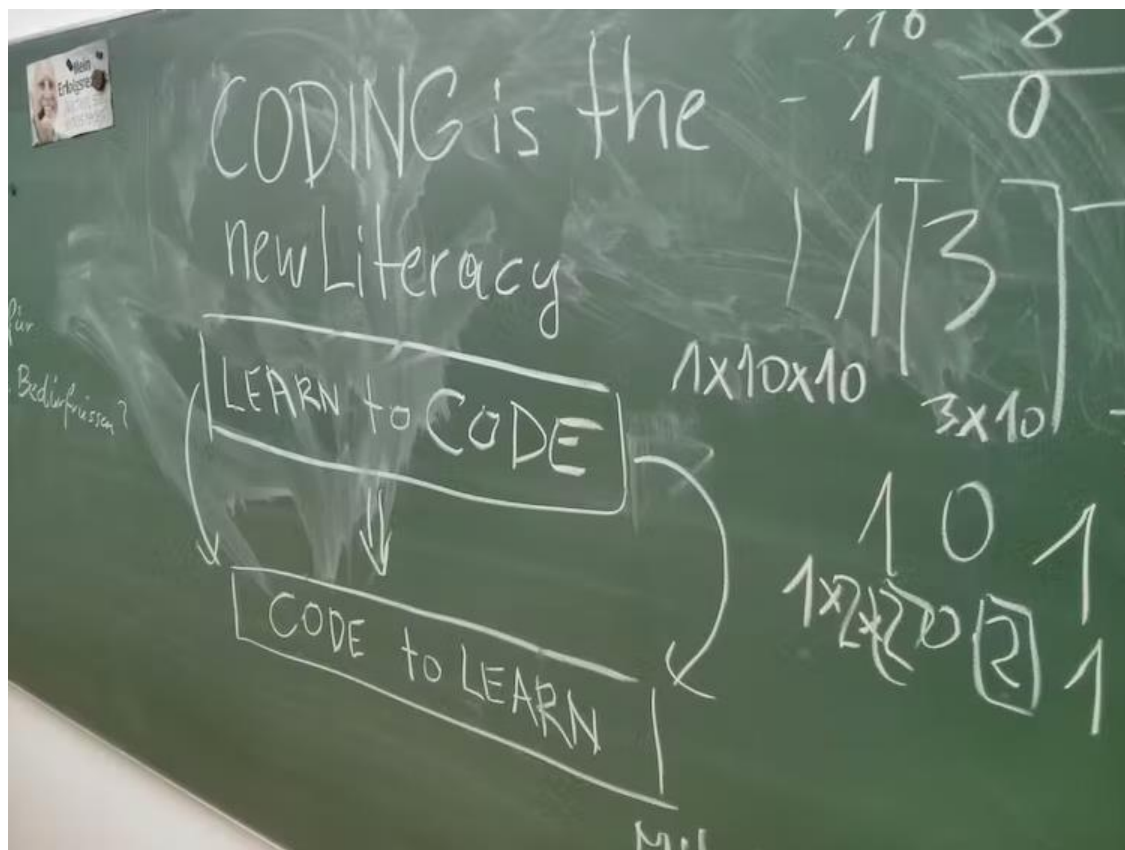 Mein
Erfolgsre
CODING is the
new Literacy
LEARN to CODE
CODE to LEARN
für
Bedürfnissen?
8
- 1 0
1 3
1x10x10
3x10
1 0 1
1x2x2 0 2 1